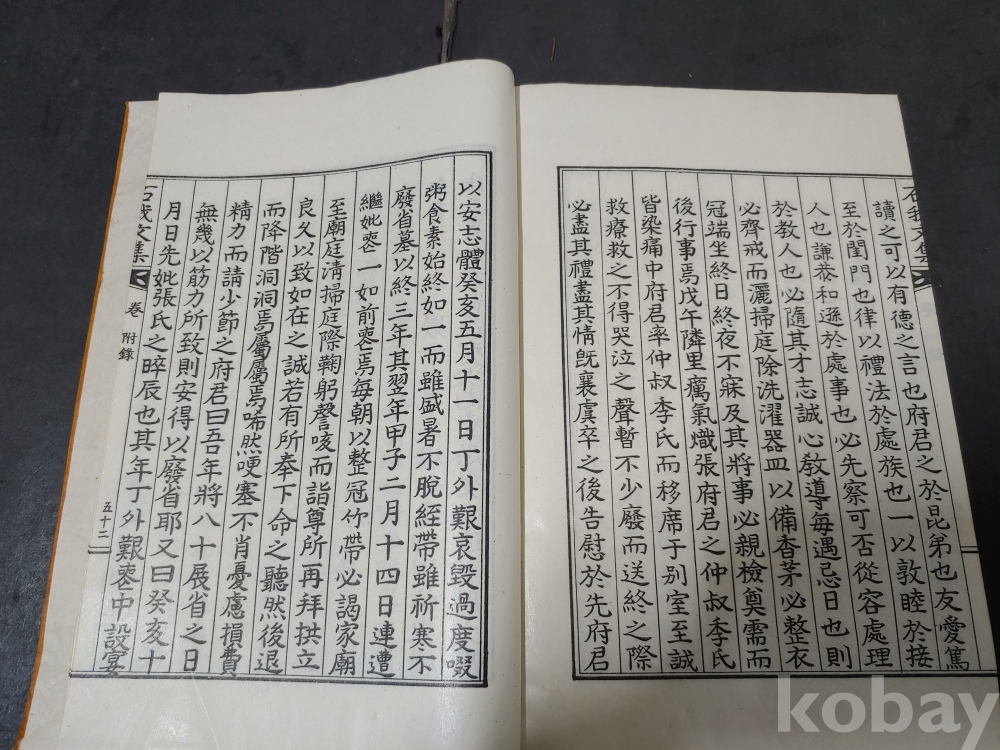 讀之可以有德之言也府君之於昆弟也友愛篤
至於閨門也律以禮法於處族也一以敦睦於接
人也謙恭和遜於處事也必先察可否從容處理
於教人也必隨其才志誠心敎導每遇忌日也則
必齊戒而灑掃庭除洗濯器皿以備香茅必整衣
冠端坐終日終夜不寐及其將事必親檢奠需而
後行事焉戊午隣里癘氣熾張府君之仲叔季氏
皆染痛中府君率仲叔季氏而移席于别室至誠
救療救之不得哭泣之聲暫不少廢而送終之際
必盡其禮盡其情旣襄虞卒之後告慰於先府君
以安志體癸亥五月十一日丁外艱哀毀過度啜
粥食素始終如一而雖盛暑不脫絰帶雖祈寒不
廢省墓以終三年其翌年甲子二月十四日連遭
繼妣喪一如前喪焉每朝以整冠竹帶必謁家廟
至廟庭淸掃庭際鞠躬謦咳而詣尊所再拜拱立
良久以致如在之誠若有所奉下命之聽然後退
而降階洞洞焉屬屬焉唏然哽塞不肖憂慮損費
精力而請少節之府君曰吾年將八十展省之日
無幾以筋力所致則安得以廢省耶又曰癸亥十
月日先妣張氏之晬辰也其年丁外艱喪中設宴
文集
卷
附錄
五十二
kobay